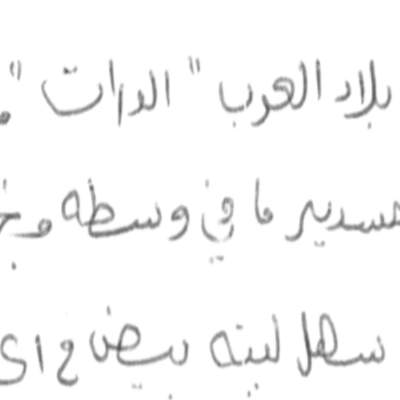 بلاد العرب "الدارات".
مستدير ما في وسطه و
سهل لينه بيض